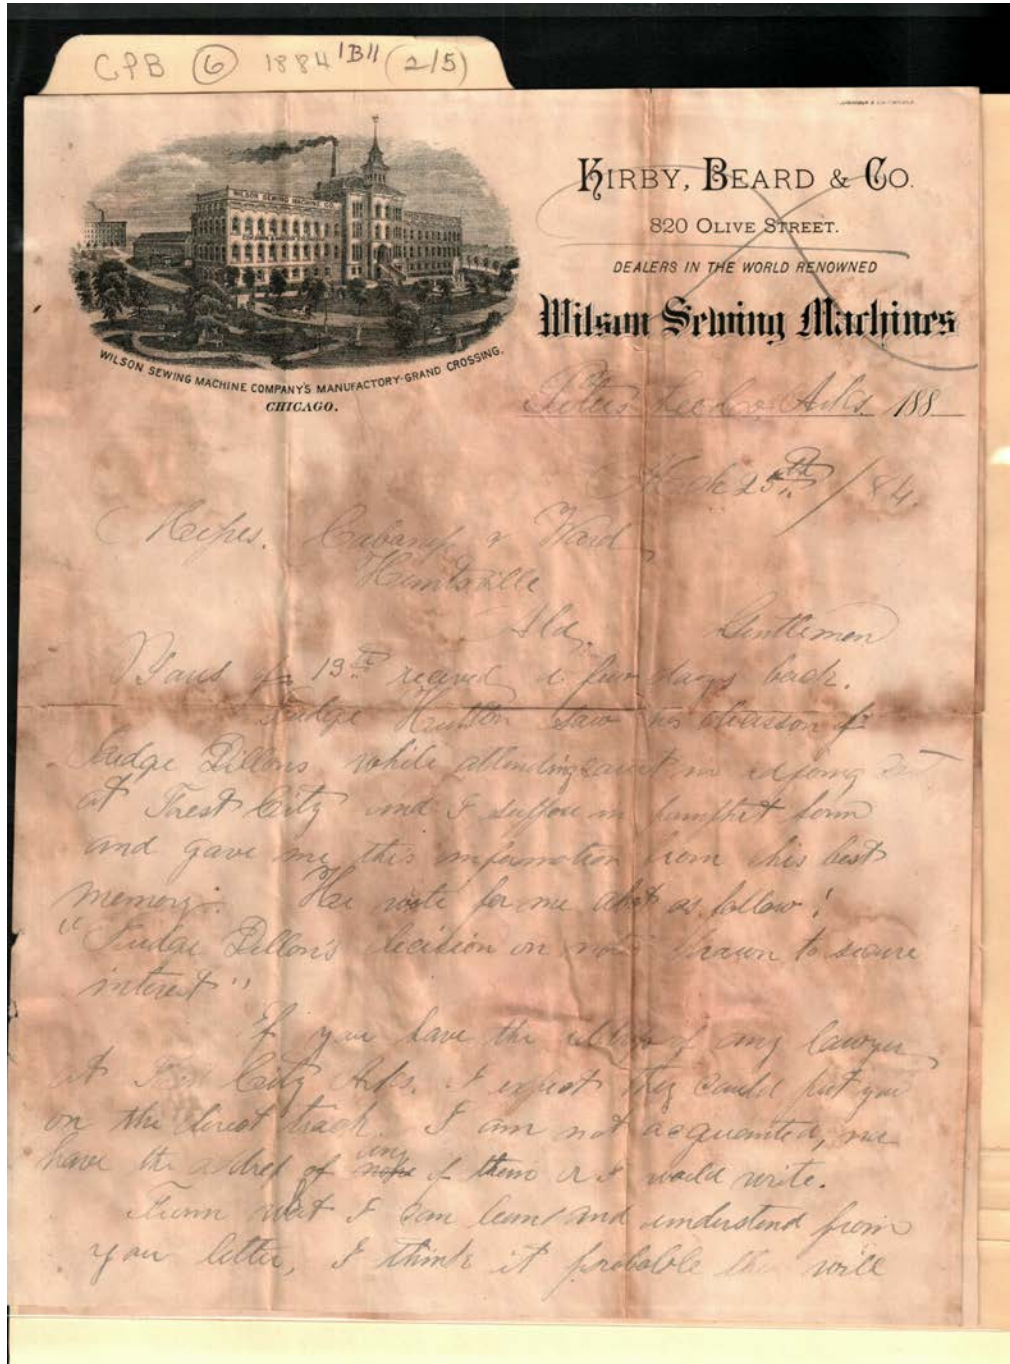 CPB 6 1884 "B" (2/5)
WILSON SEWING MACHINE CO.
WILSON SEWING MACHINE COMPANY'S MANUFACTORY-GRAND CROSSING.
CHICAGO.
KIRBY, BEARD & CO.
820 OLIVE STREET.
DEALERS IN THE WORLD RENOWNED
Wilson Sewing Machines
Arks. 188
25th /84.
Cabaness & Ward
Huntsville
Ala. Gentlemen
Yours of 19th recieved a few days back.
Judge Hutton saw
Judge Dillons while attending court
at city and I suppose in form
and gave me this information from his best
memory. Hee wrote for me abot as follow:
"Judge Dillon's decision on notes drawn to secure
interest"
If you have the of any lawyer
at City Arks. I expect they could put you
on the direct track. I am not acquainted, nor
have the adress of none any of them or I would write.
From wat I can learn and understand from
your letter, I think it probable will